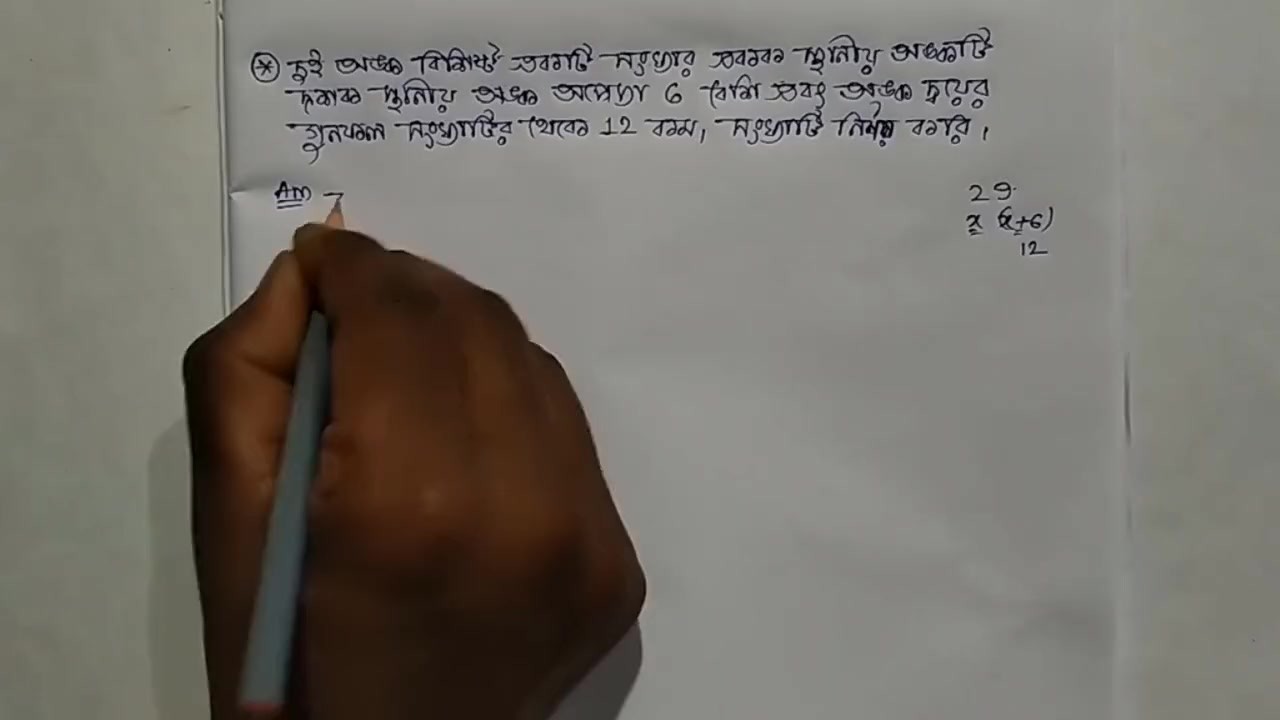 * দুই অঙ্ক বিশিষ্ট একটি সংখ্যার একক স্থানীয় অঙ্কটি
দশক স্থানীয় অঙ্ক অপেক্ষা 6 বেশি এবং অঙ্ক দ্বয়ের
গুনফল সংখ্যাটির থেকে 12 কম, সংখ্যাটি নির্ণয় করি।
Ans
29
x (x+6)
12